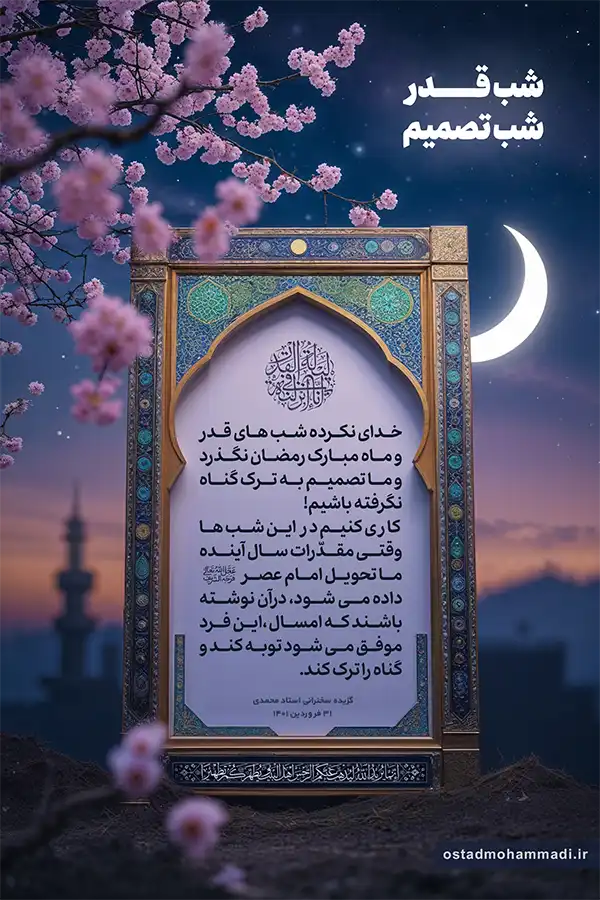 شب قدر
شب تصمیم
إنا أنزلناه في ليلة القدر
خدای نکرده شب های قدر
و ماه مبارک رمضان نگذرد
و ما تصمیم به ترک گناه
نگرفته باشیم!
کاری کنیم در این شب ها
وقتی مقدّرات سال آینده
ما تحویل امام عصر عجل الله تعالی فرجه الشریف
داده می شود، درآن نوشته
باشند که امسال، این فرد
موفق می شود توبه کند و
گناه را ترک کند.
گزیده سخنرانی استاد محمدی
۳۱ فروردین ۱۴۰۱
إنما يريد الله ليذهب عنكم الرجس أهل البيت ويطهركم تطهيرا
ostadmohammadi.ir